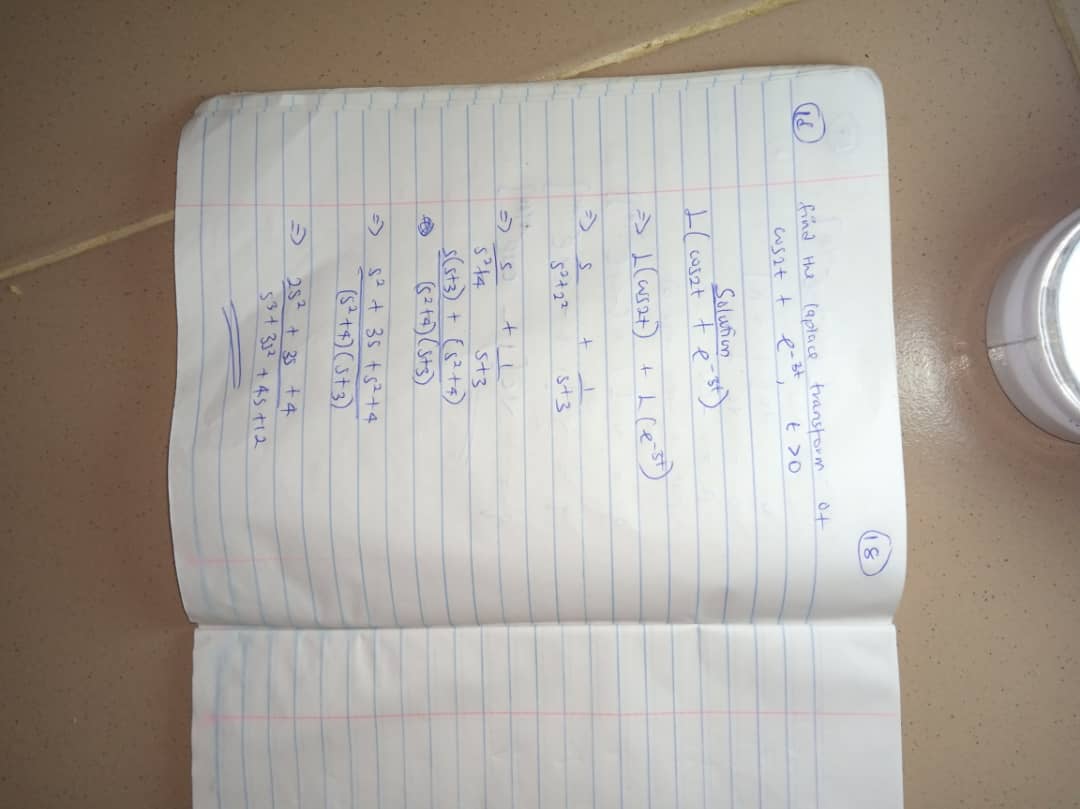 18
18 find the laplace transform of
cos2t + e^-3t, t>0
Solution
L(cos2t + e^-3t)
=> L(cos2t) + L(e^-3t)
=> s/s²+2² + 1/s+3
=> s/s²+4 + 1/s+3
s(s+3) + (s²+4)/(s²+4)(s+3)
=> s² + 3s + s²+4/(s²+4)(s+3)
=> 2s² + 3s + 4/s³+3s²+4s+12